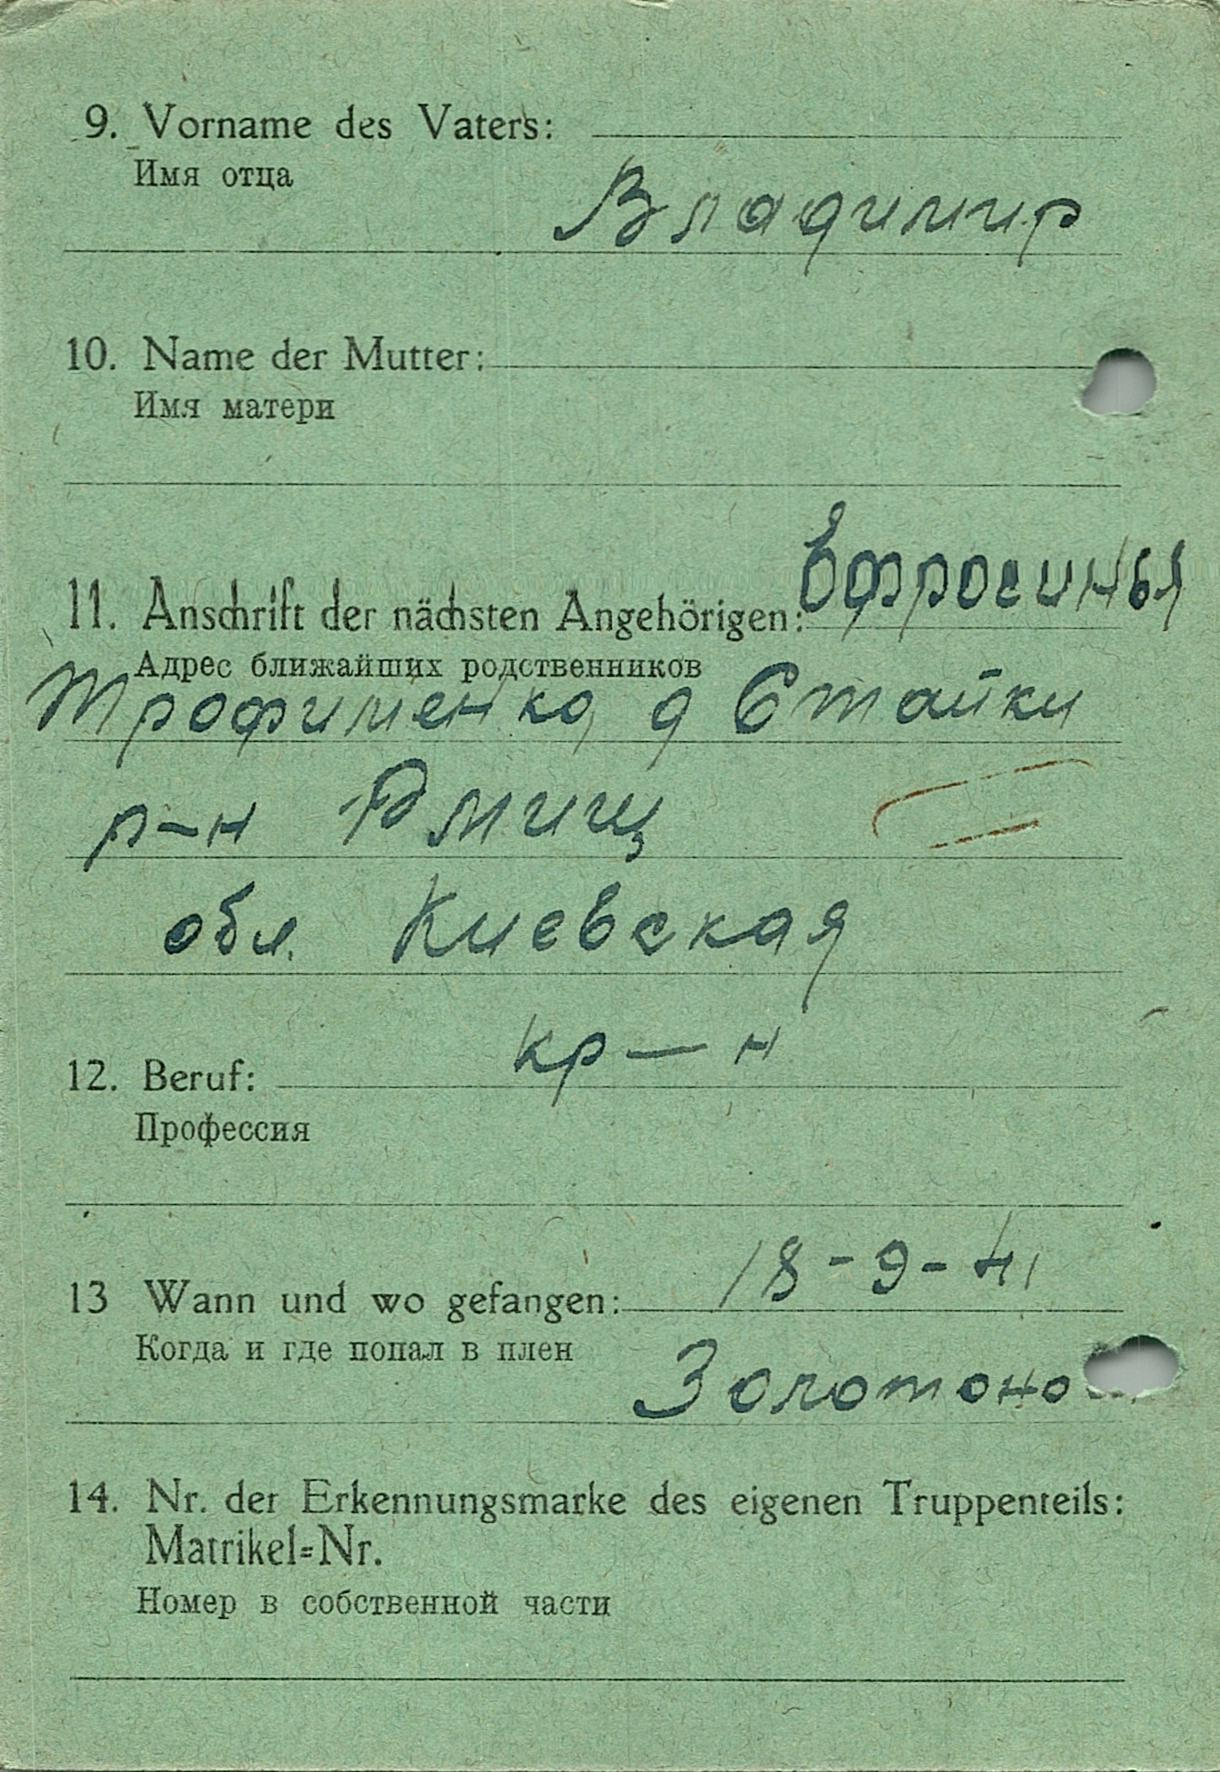 9. Vorname des Vaters:
Имя отца
Владимир
10. Name der Mutter:
Имя матери
Ефросинья
11. Anschrift der nächsten Angehörigen:
Адрес ближайших родственников
Трофименко д Стайки
р-н
обл. Киевская
кр-н
12. Beruf:
Профессия
18-9-41
13 Wann und wo gefangen:
Когда и где попал в плен
14. Nr. der Erkennungsmarke des eigenen Truppenteils:
Matrikel=Nr.
Номер в собственной части